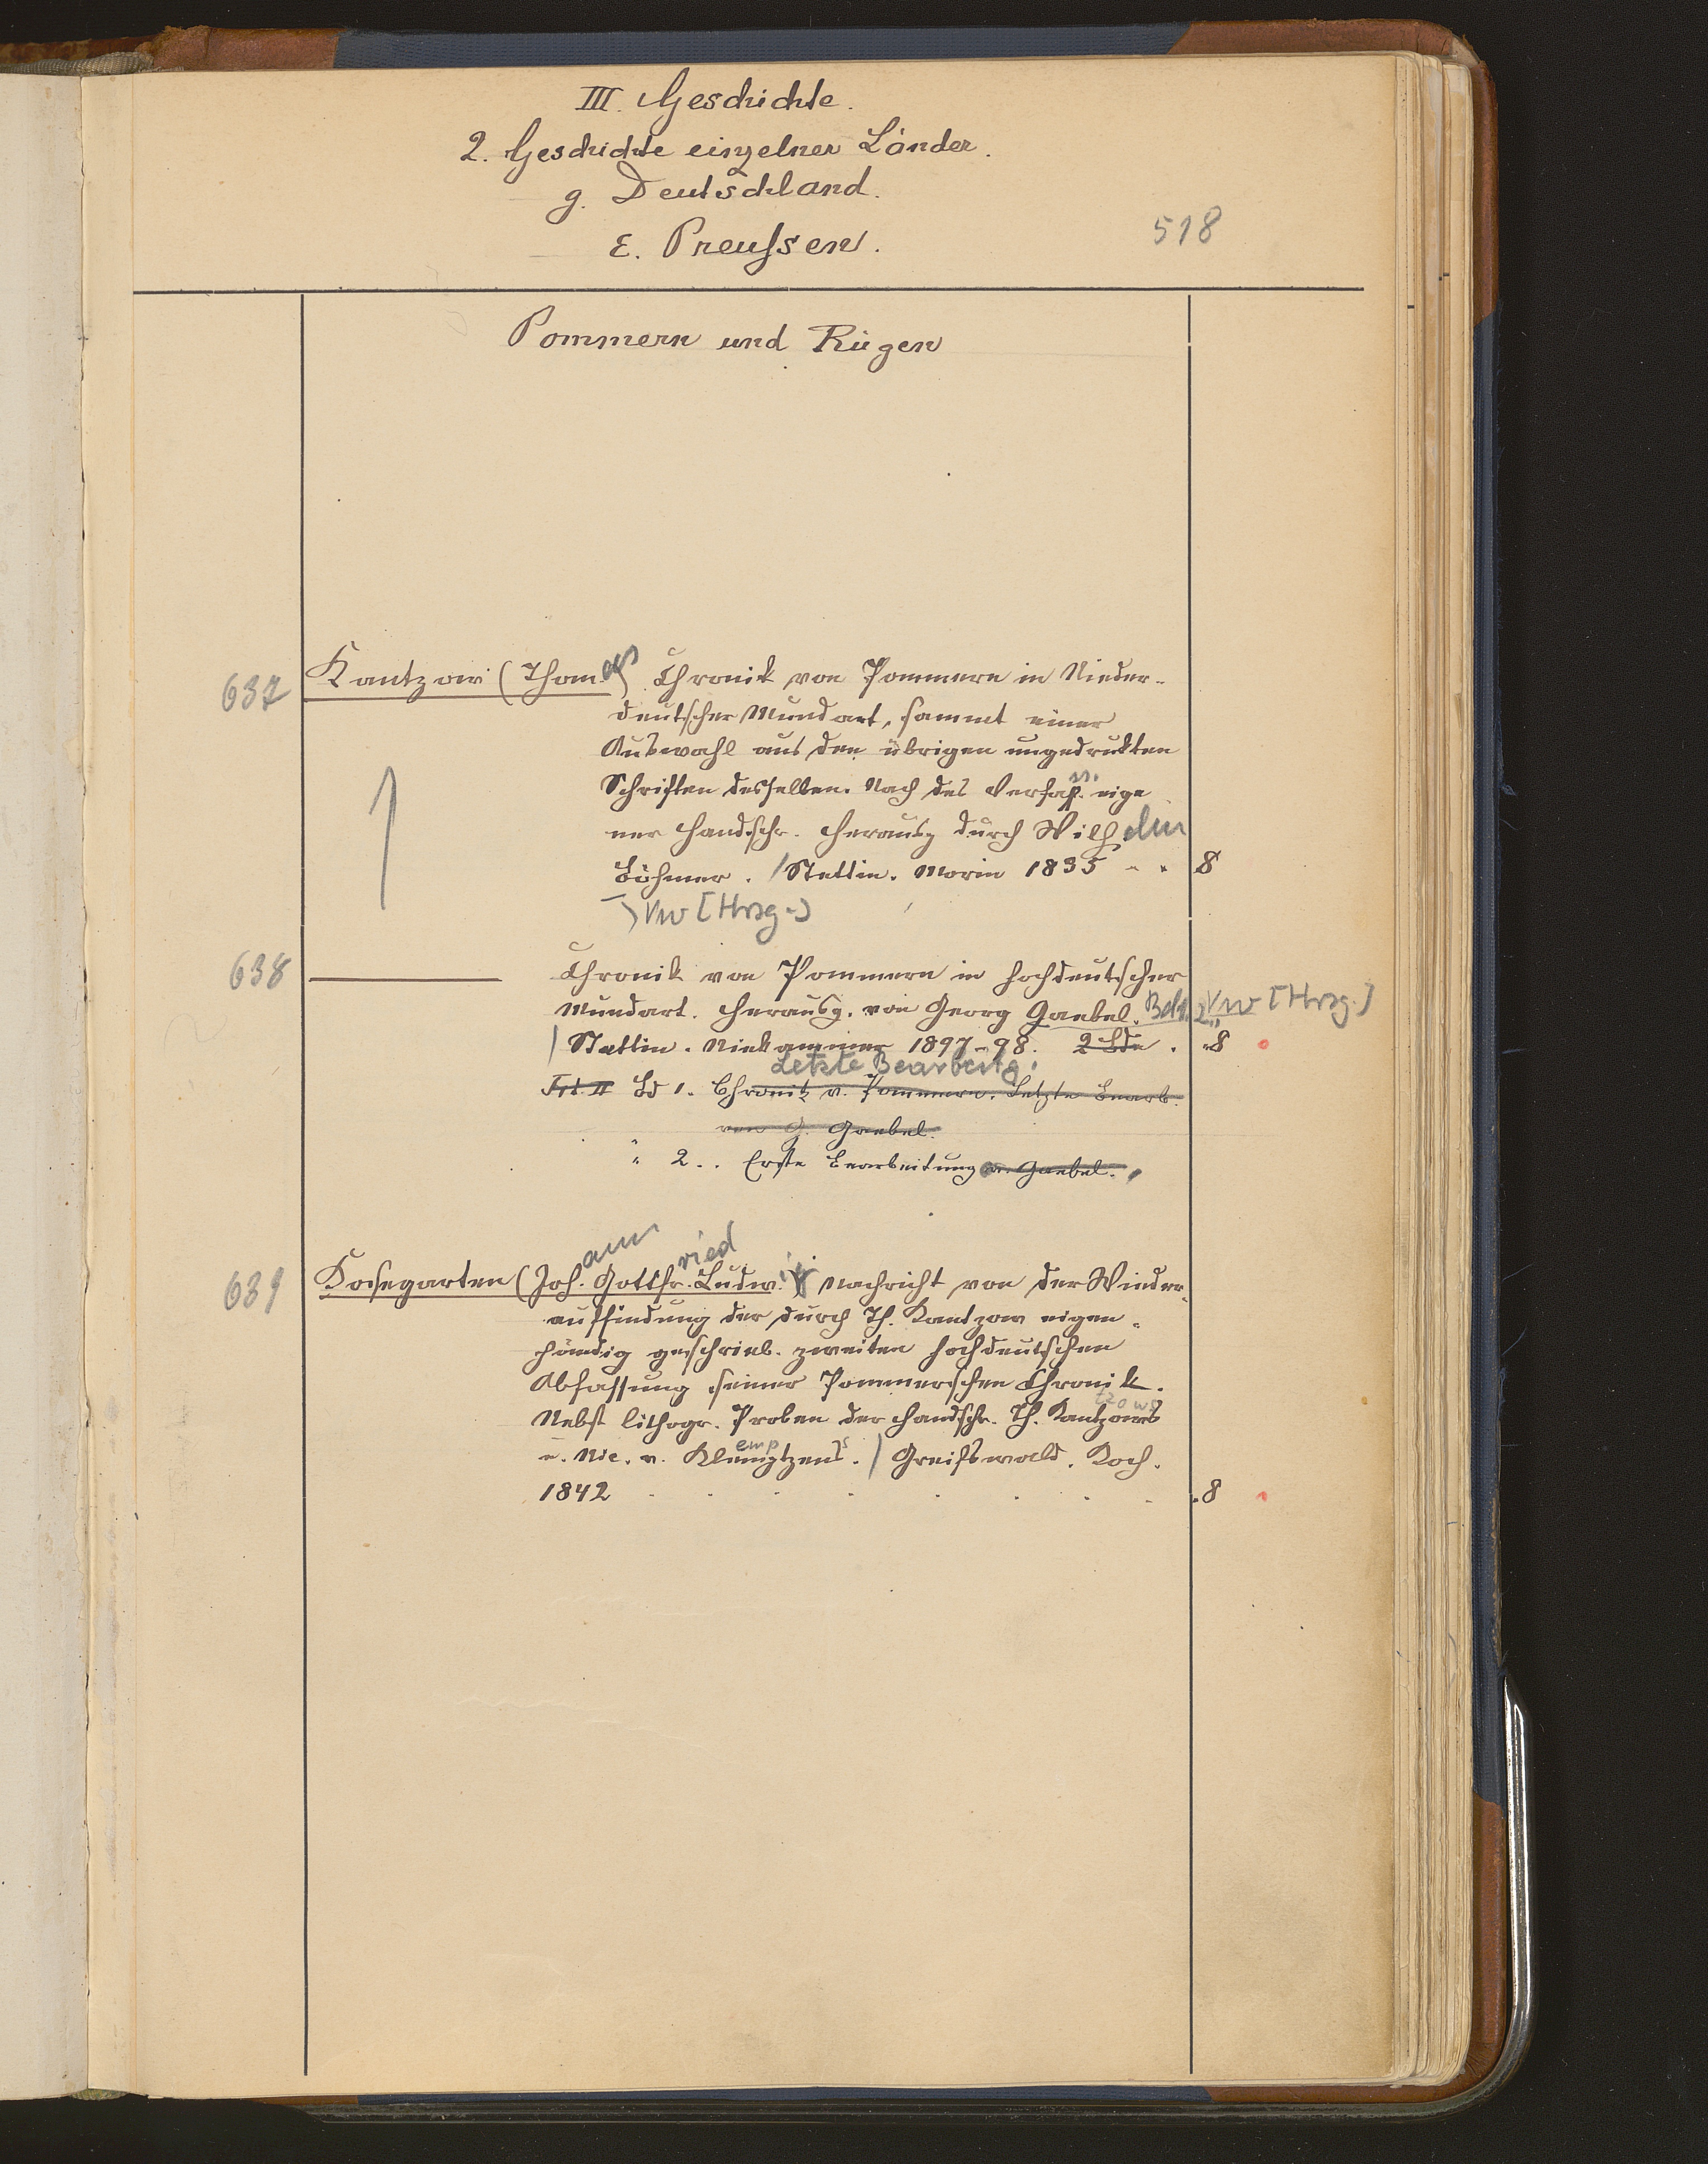 III. Geschichte.
2. Geschichte einzelner Länder.
g. Deutschland.
ε. Preussen.
518
Pommern und Rügen
637 Kantzow (Thomas) Chronik von Pommern in Nieder-
deutscher Mundart, sammt einer
Auswahl aus den übrigen ungedrukten
Schriften desselben. Nach des Verfass. eige
ner Handschr. herausg durch Wilhelm
Böhmer. / Stettin. Morin 1835 8
Vw [Hrsg.]
638 ——— Chronik von Pommern in hochdeutscher
Mundart. Herausg. von Georg Gaebel. Bd 1. 2 Vw [Hrsg.]
/ Stettin. Niekammer 1897-98. 2 Bde. 8
Letzte Bearbeitg.
Bd 1. Chronik v. Pommern. Letzte Bearb.
von G. Gaebel.
" 2.. Erste Bearbeitung v. Gaebel.
639 Kosegarten (Johann Gottfried Ludwig) Nachricht von der Wieder-
auffindung der durch Th. Kantzow eigen-
händig geschrieb. zweiten hochdeutschen
Abfassung seiner Pommerschen Chronik.
Nebst lithogr. Proben der Handschr. Th. Kantzows
u. Nic. v. Klemptzens. / Greifswald. Koch.
1842 8